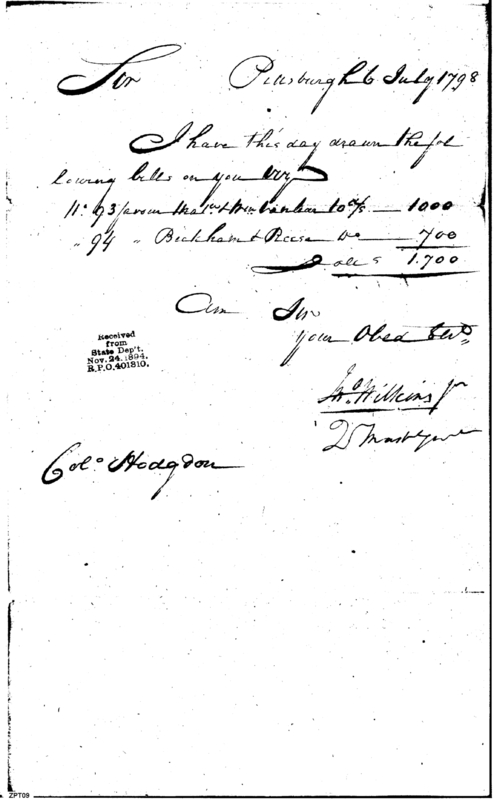 Sir Pittsburgh 6 July 1798
I have this day drawn the fol
lowing bills on you Viz
No 93 favour 10 d/s 1000
" 94 " Beckham & Reese Do 700
Dolls 1.700
Am Sir
your Obed Serv
Jno Wilkins Jr
Colo Hodgdon
Received
from
State Dep't.
Nov. 24, 1894.
R.P.O. 401810.
ZPT09